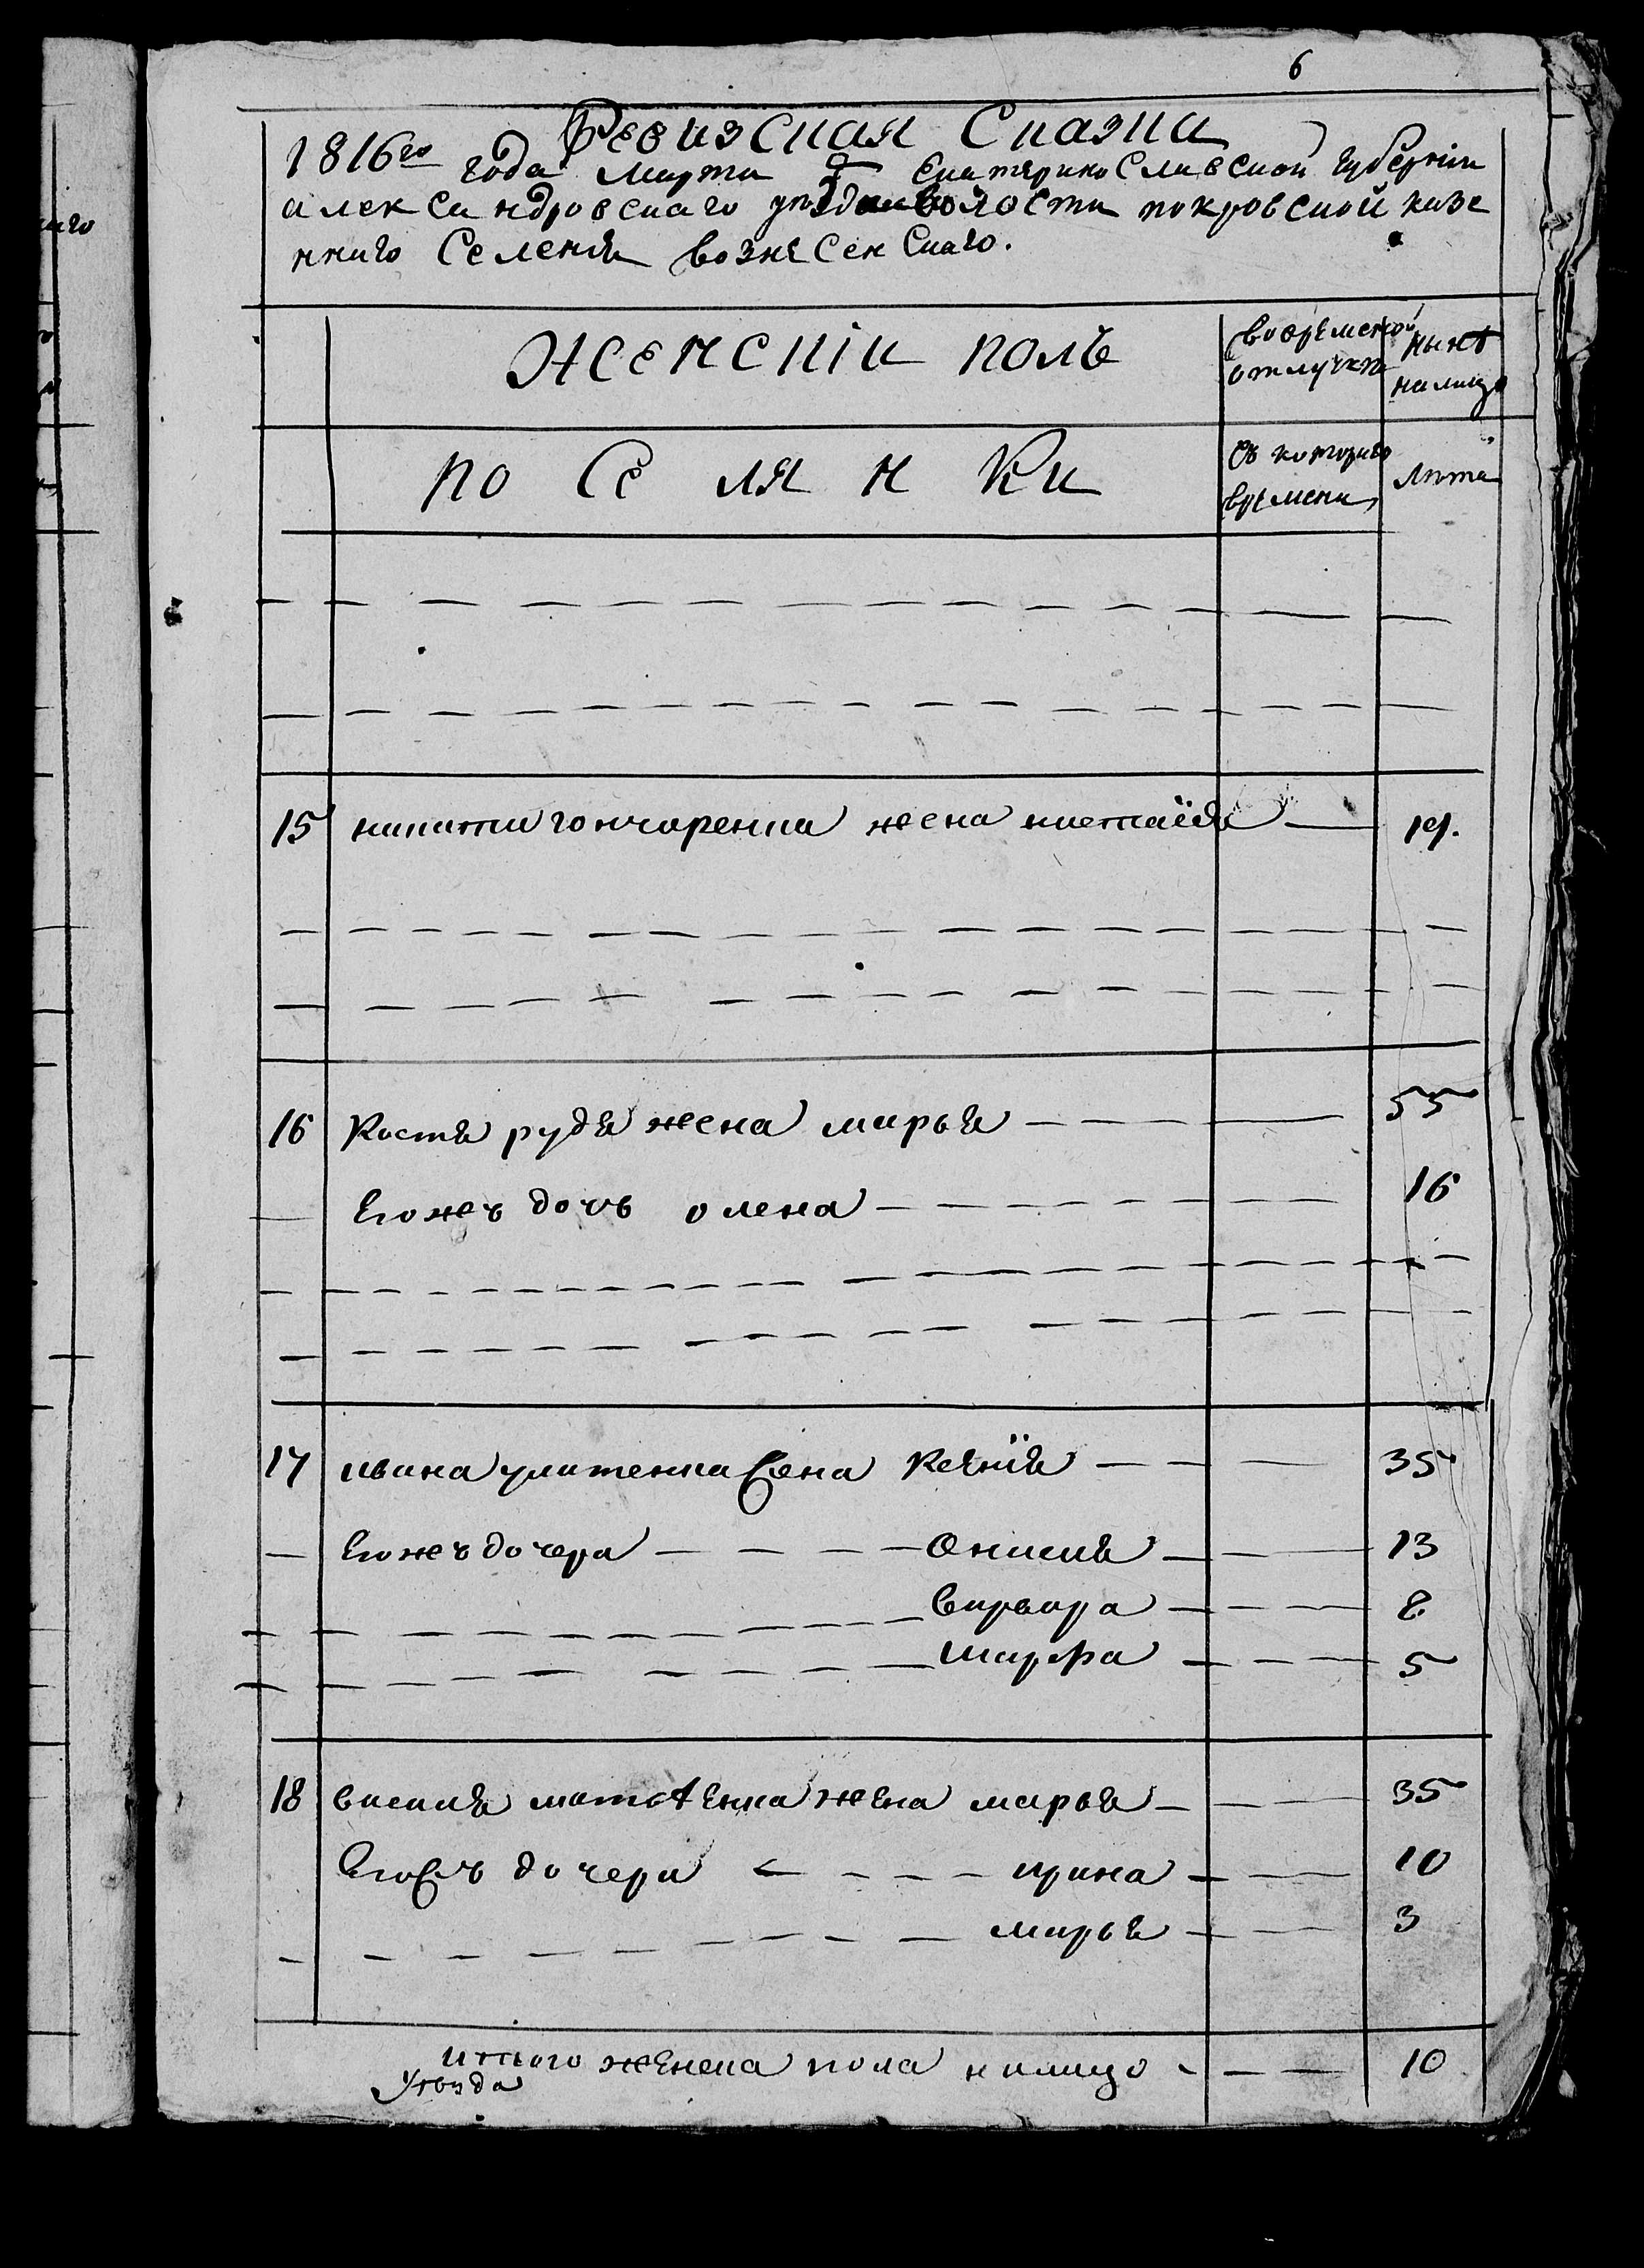 6
Ревизская Сказка
1816го года марта Екатеринославской губернии
александровскаго уезда волости покровской казе
ннаго Селения вознесенскаго.
женский полъ
во временной отлучки
ныне налицо
поселянки
съ котораго времени
лета
15 никиты гончаренка жена настасия 19.
16 Костя рудя жена марья 55
Его жъ дочь олена 16
17 ивана жена Ксения 35
Его жъ дочери Онисия 13
варвара 8
марфа 5
18 василя жена марья 35
Его жъ дочери ирина 10
марья 3
итого женска пола налицо 10
уезда